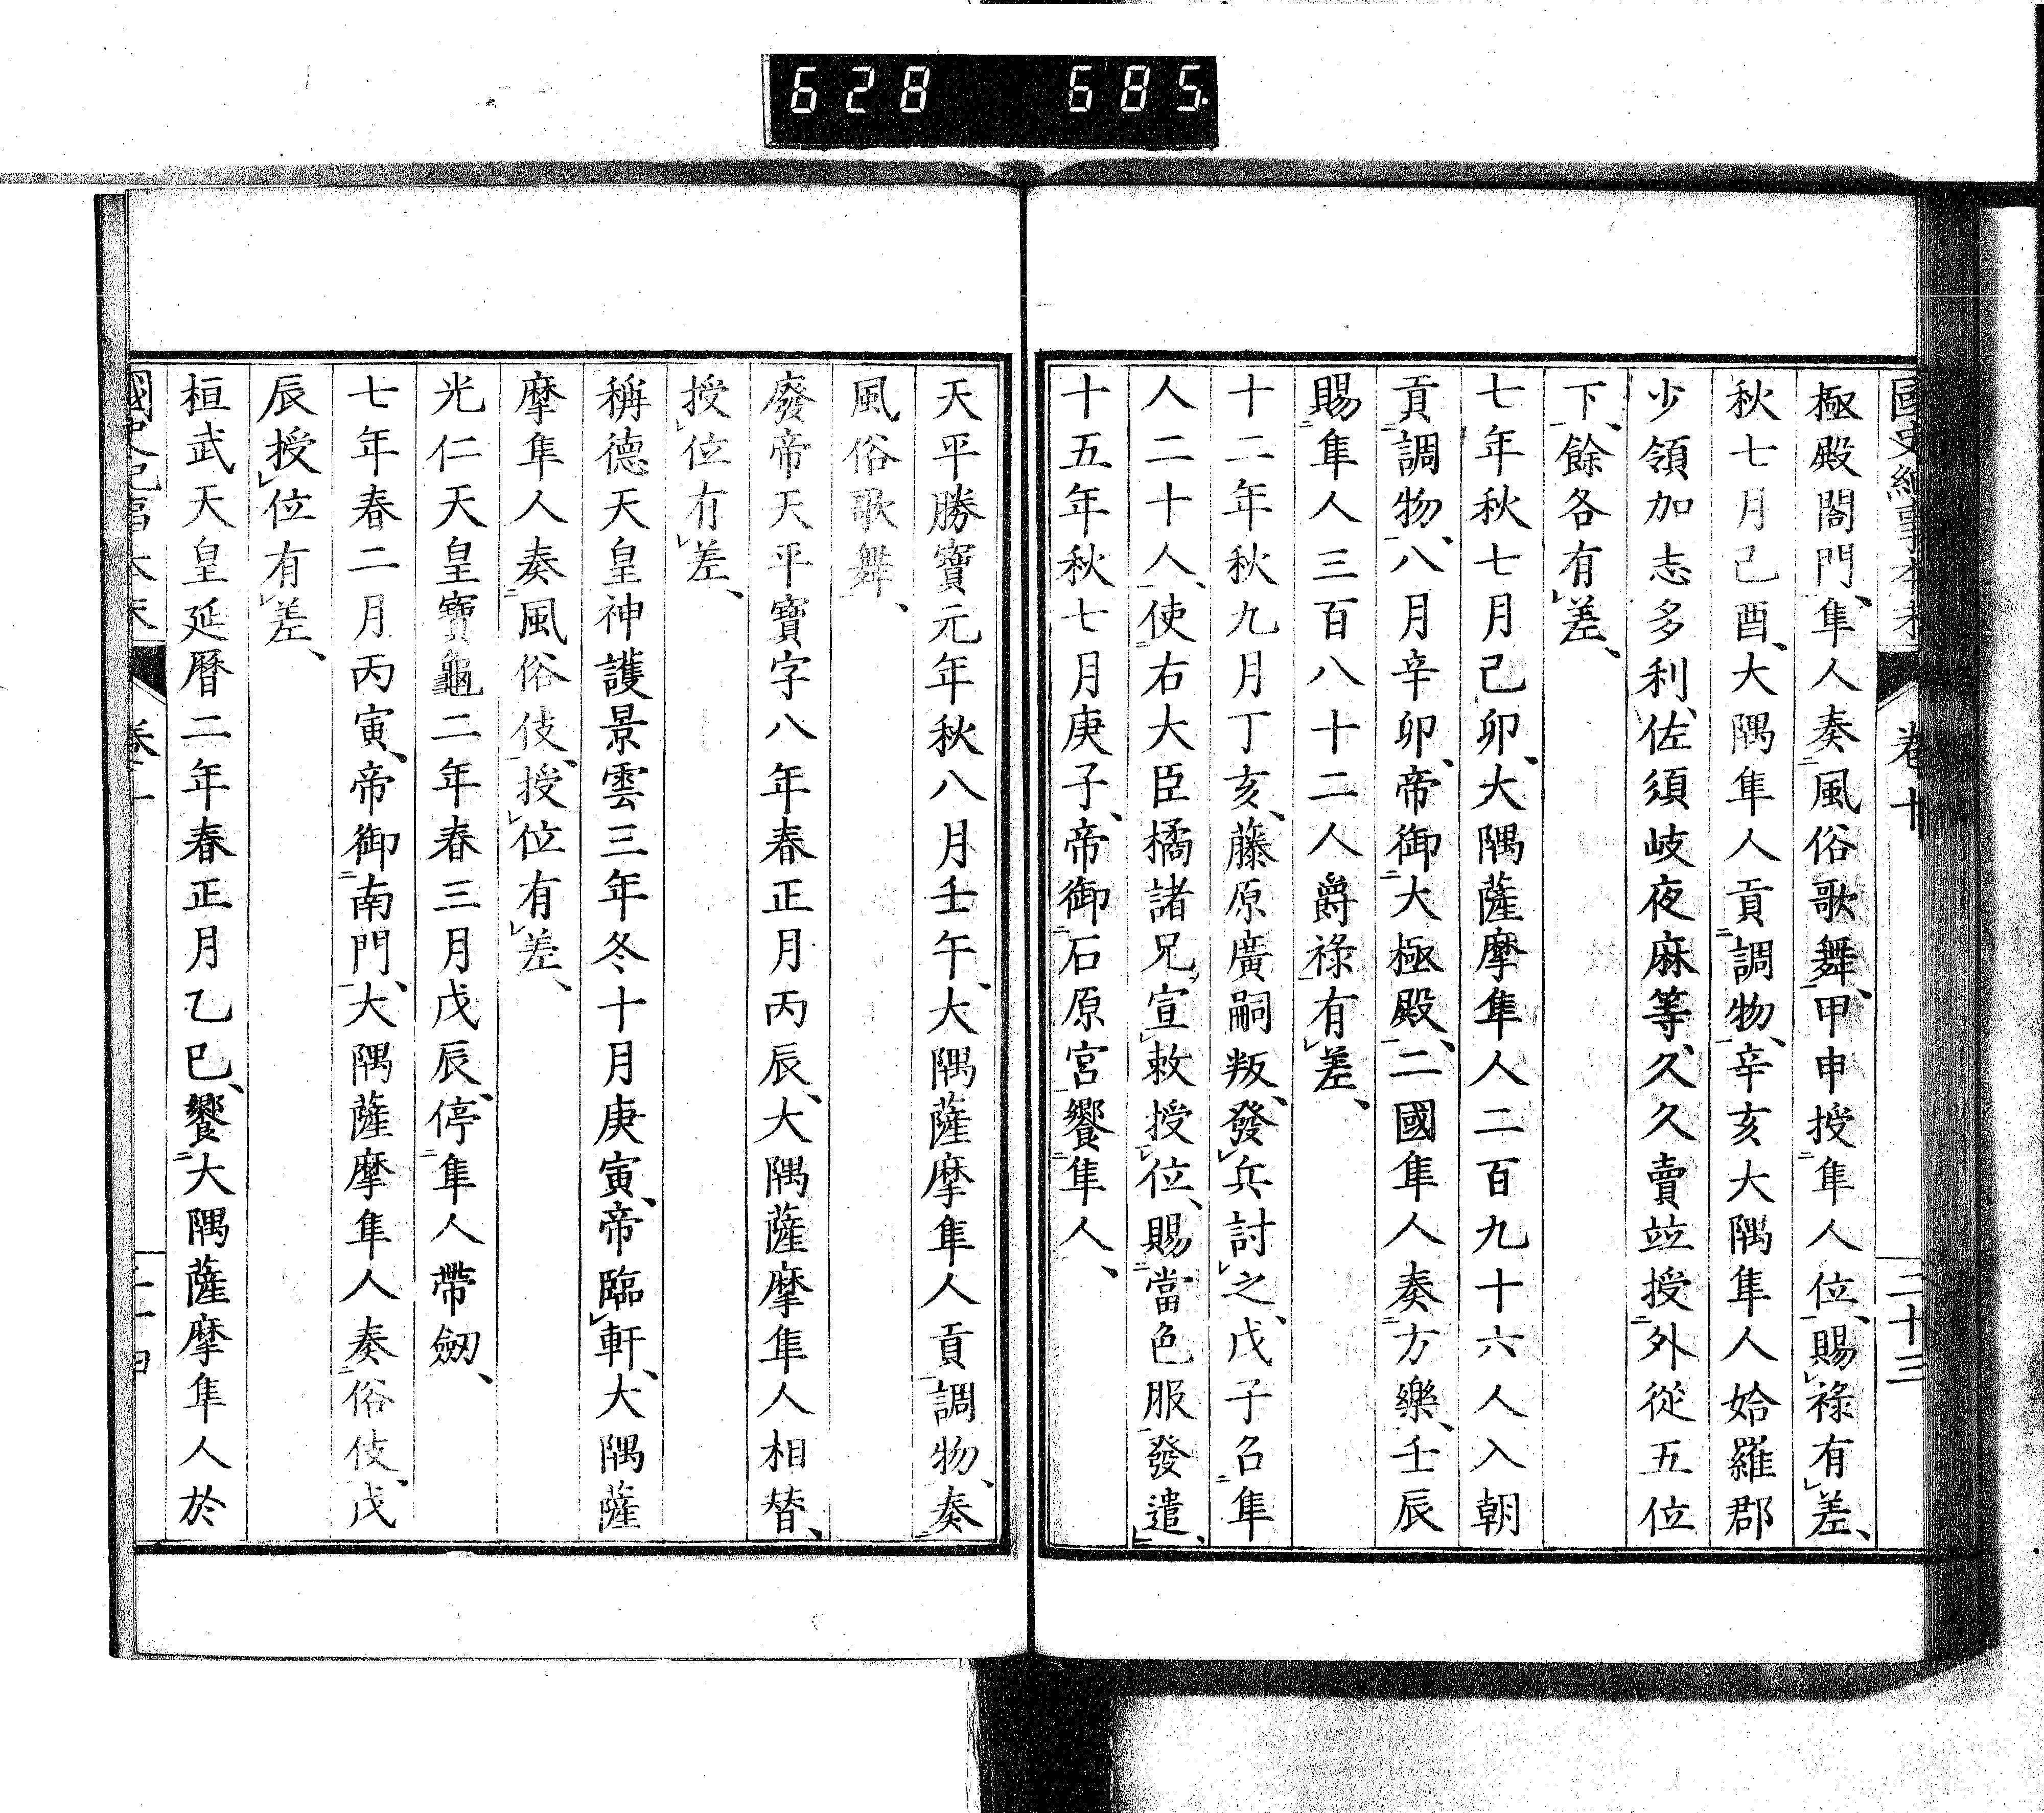 628 685
國史紀事本末 卷十 二十三
極殿閤門、隼人奏風俗歌舞、甲申授隼人位、賜祿有差、
秋七月己酉、大隅隼人貢調物、辛亥大隅隼人姶羅郡
少領加志多利、佐須岐夜麻等、久久賣竝授外從五位
下、餘各有差、
七年秋七月己卯、大隅薩摩隼人二百九十六人入朝
貢調物、八月辛卯、帝御大極殿、二國隼人奏方樂、壬辰
賜隼人三百八十二人爵祿有差、
十二年秋九月丁亥、藤原廣嗣叛、發兵討之、戊子召隼
人二十人、使右大臣橘諸兄宣敕授位、賜當色服發遣、
十五年秋七月庚子、帝御石原宮饗隼人、
天平勝寶元年秋八月壬午、大隅薩摩隼人貢調物、奏
風俗歌舞、
廢帝天平寶字八年春正月丙辰、大隅薩摩隼人相替、
授位有差、
稱德天皇神護景雲三年冬十月庚寅、帝臨軒、大隅薩
摩隼人奏風俗伎、授位有差、
光仁天皇寶龜二年春三月戊辰、停隼人帶劒、
七年春二月丙寅、帝御南門、大隅薩摩隼人奏俗伎、戊
辰授位有差、
桓武天皇延曆二年春正月乙巳、饗大隅薩摩隼人於